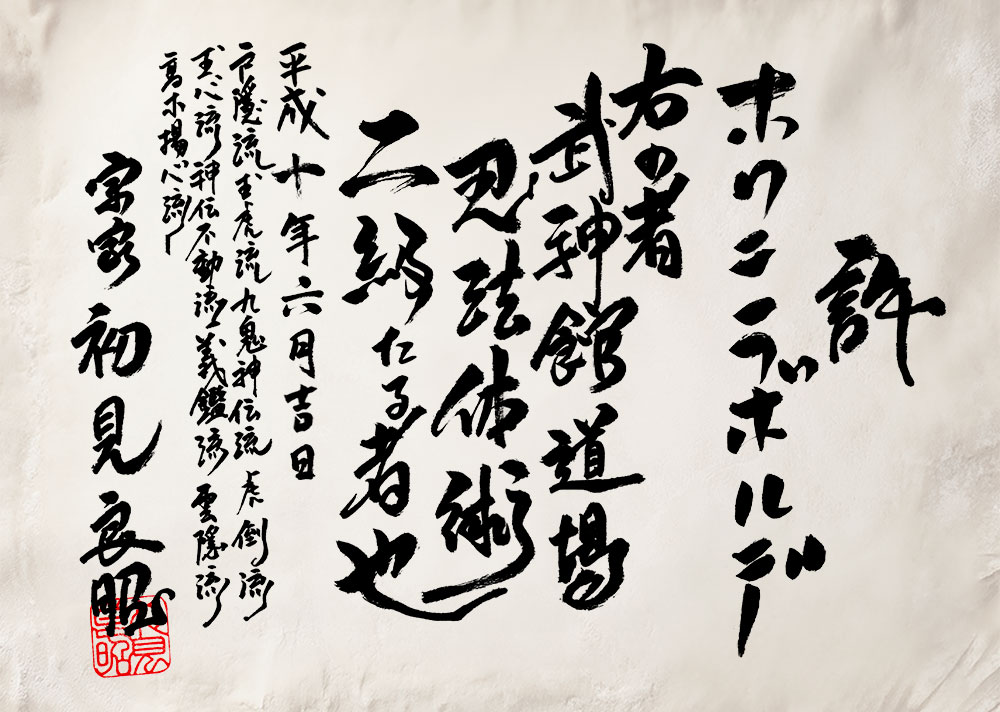 許
右の者
武神館道場
忍法体術
二級たる者也
平成十年六月吉日
戸隠流玉虎流九鬼神伝流虎倒流
玉心流神伝不動流義鑑流雲隠流
高木揚心流
宗家初見良昭